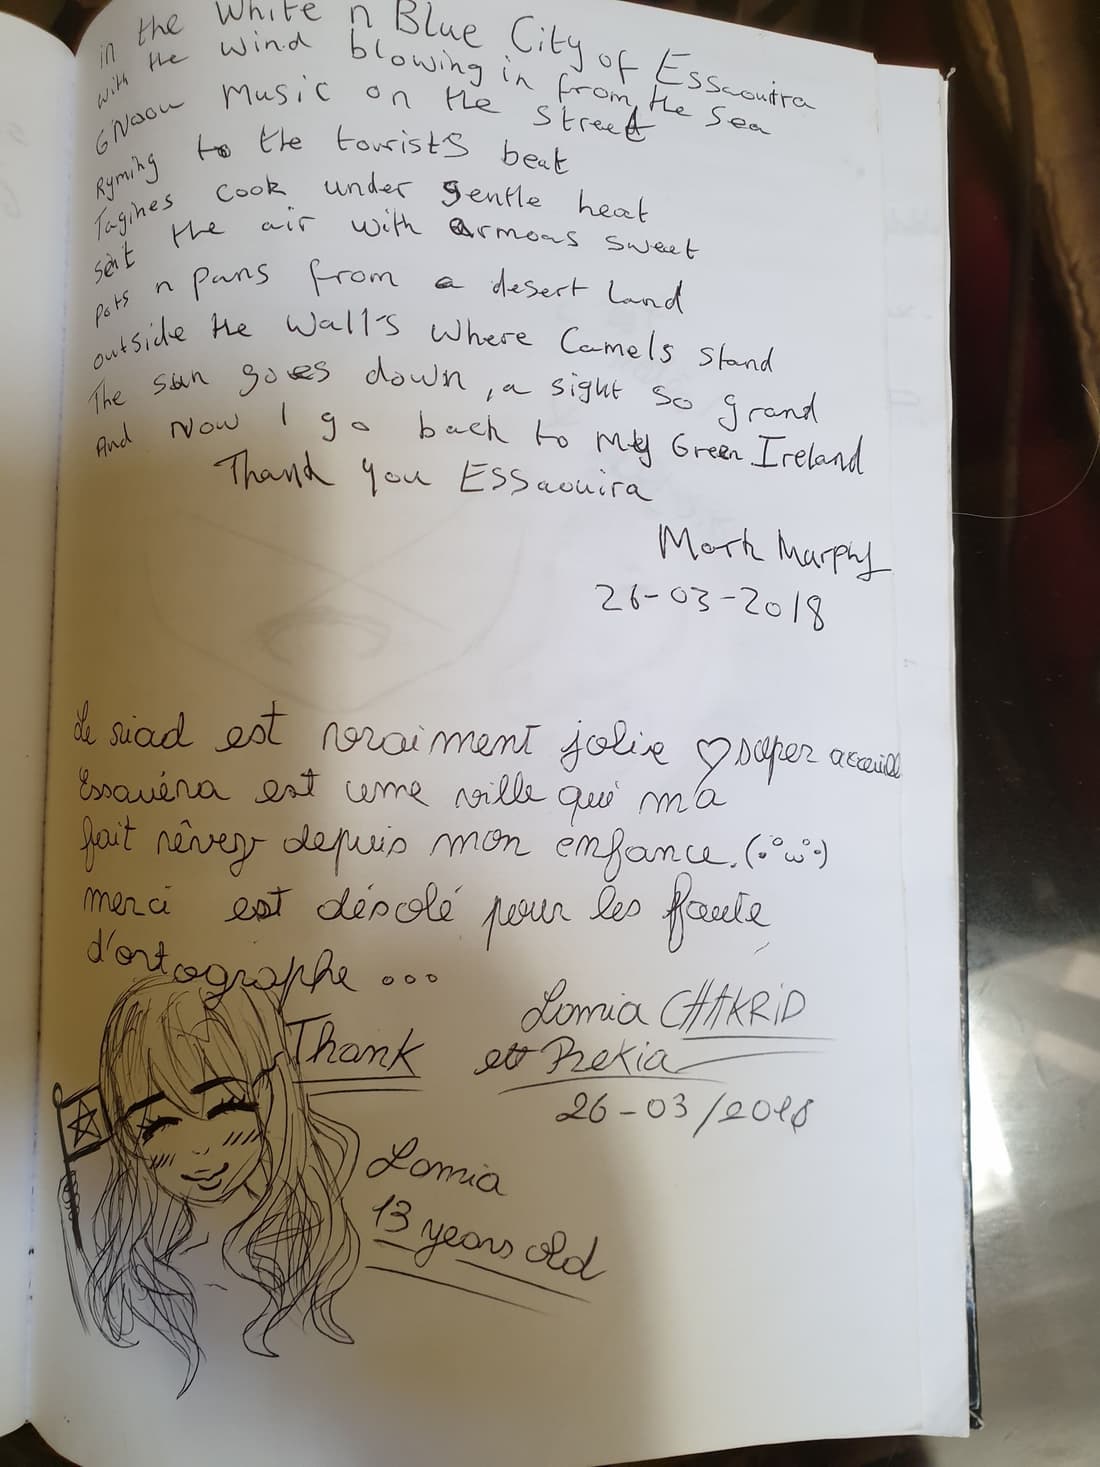 in the White n Blue City of Essaouira
with the wind blowing in from the sea
G'Naou Music on the street
Ryming to the tourists beat
Tagines cook under gentle heat
sent the air with armoas sweet
pots n pans from a desert land
outside the Wall's where Camels stand
The sun goes down, a sight so grand
And Now I go back to my Green Ireland
Thank you Essaouira
Mark Murphy
26-03-2018
Le riad est vraiment jolie ♡ super acceuille
Essauéra est une ville qui m'a
fait rêvez depuis mon enfance. (·°ω°·)
merci est désolé pour les faute
d'ortographe ...
Thank
Lamia CHAKRiD
et Rekia
26-03/2018
Lamia
13 years old